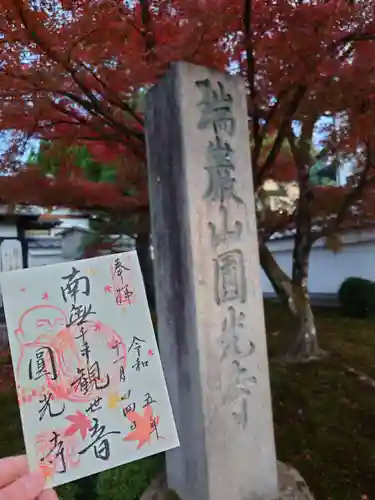 瑞巖山圓光寺
奉拝
南無千手観世音
圓光寺
令和五年
十一月廿四日